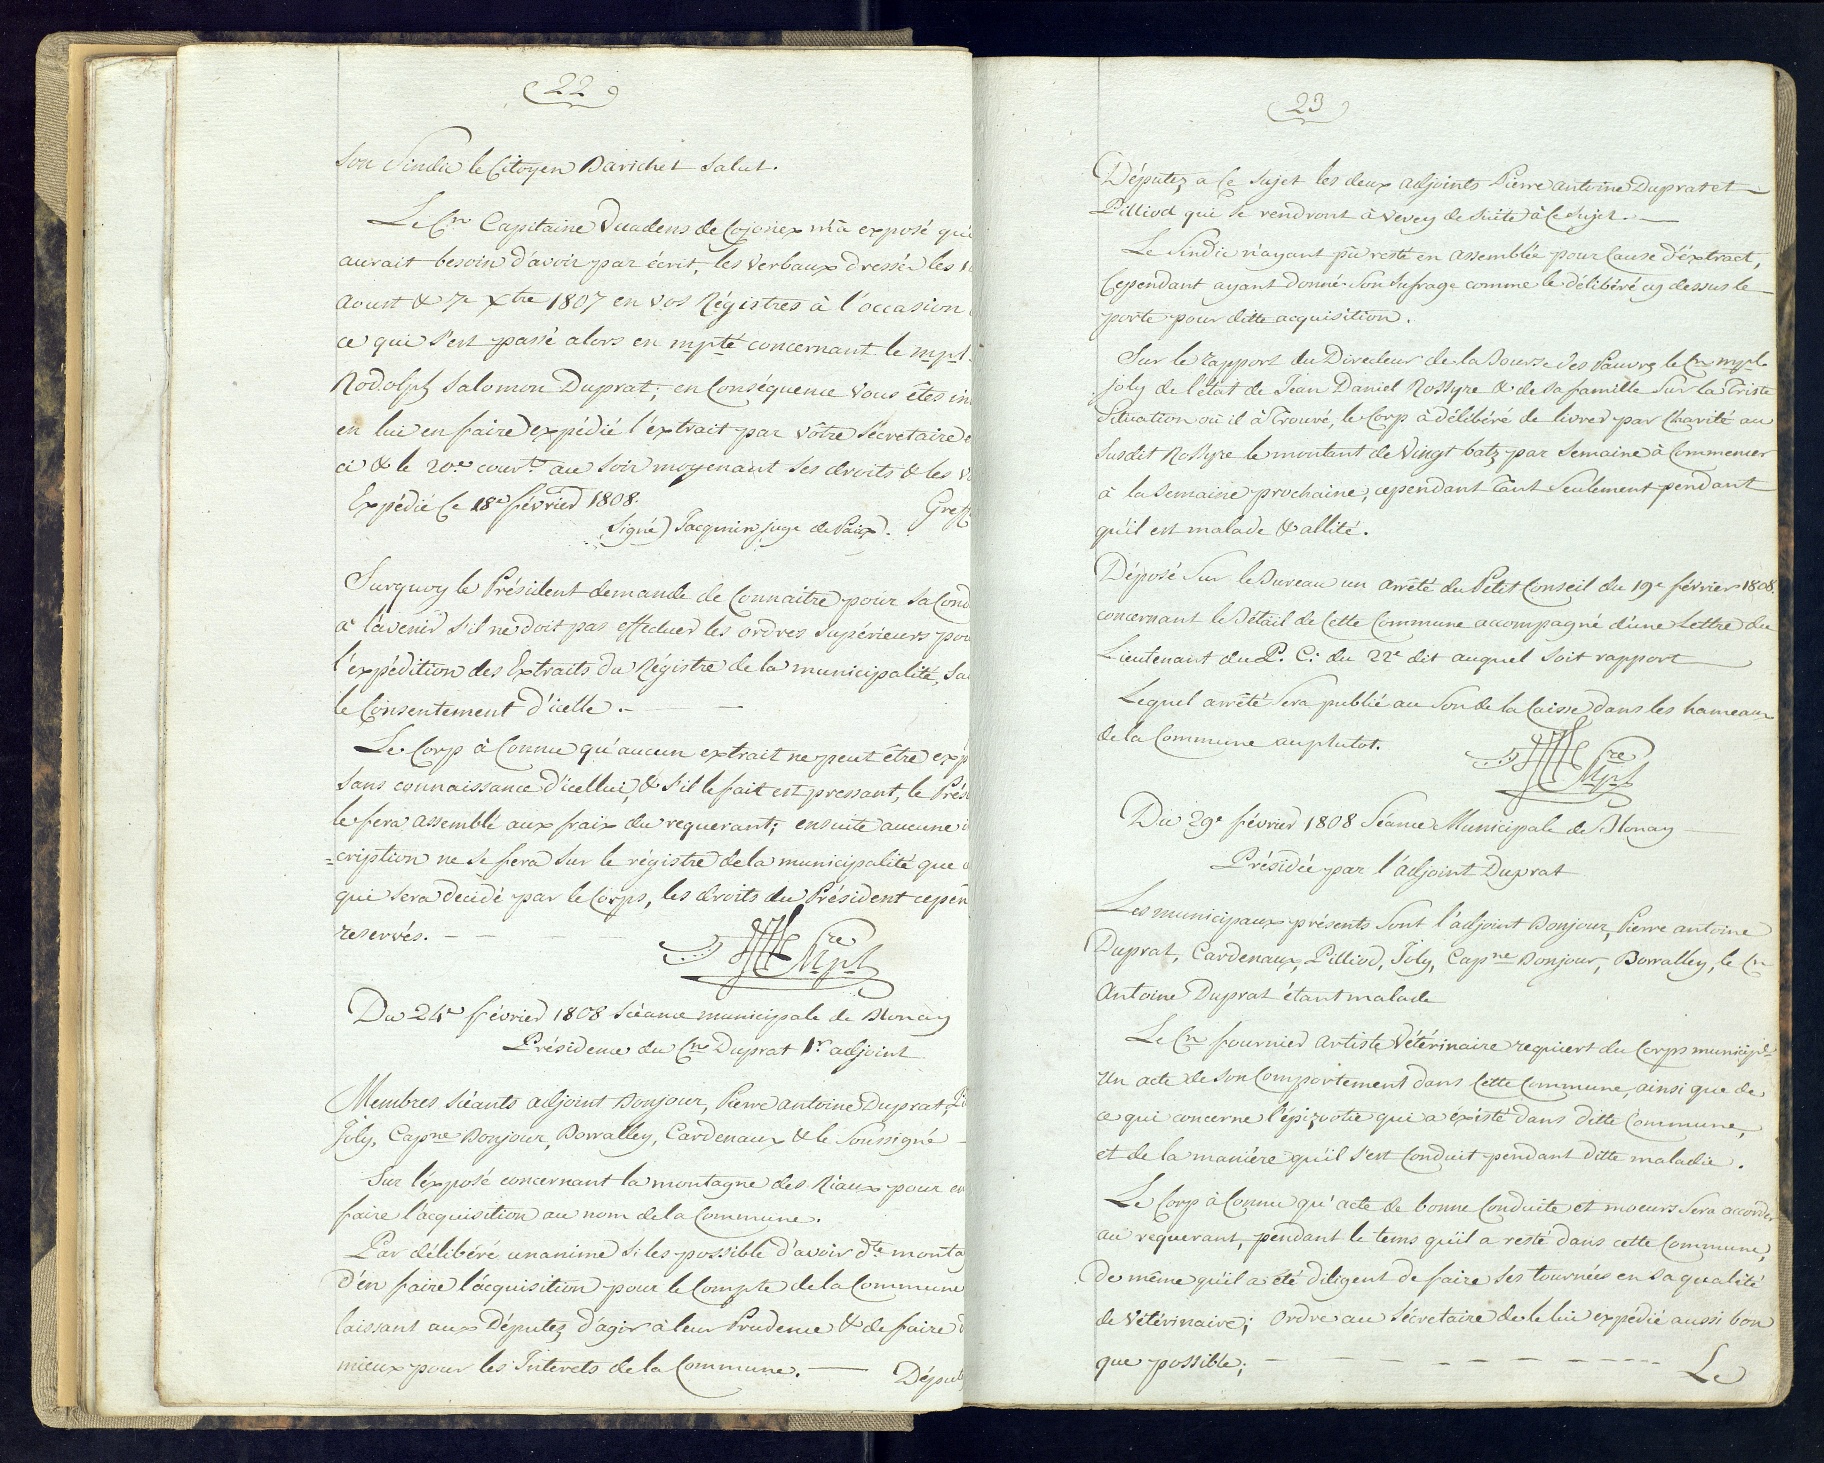 22
Son Sindic le Citoyen Darichet Salut.
Le Cn Capitaine Vuadens de Cojonex m'a exposé qu'
aurait besoin d'avoir par écrit, les verbaux dressés les
Aoust & 7e Xbre 1807 en vos Régistres à l'occasion
ce qui s'est passé alors en mpté concernant le mpl
Rodolph Salomon Duprat; en Conséquence Vous êtes
en lui en faire expédié l'extrait par vôtre Secretaire
ci & le 20e court au soir moyenant ses droits & les
Expédié Ce 18e février 1808. Greff
Signé) Jacquin juge de Paix.
Surquoy le Président demande de Connaitre pour sa Cond
à l'avenir s'il ne doit pas effectuer les ordres supérieurs pou
l'expédition des Extraits du Régistre de la municipalité,
le Consentement d'icelle. —
Le Corp à Connu qu'aucun extrait ne peut être exp
sans connaissance d'icellui, & s'il le fait est pressant, le Prés
le fera assemblé aux fraix du requerant; ensuite aucune
=cription ne se fera sur le régistre de la municipalité que
qui sera decidé par le Corps, les droits du Président cepen
reservés. — — —
re
Mpl
Du 24e février 1808 Séance municipale de Blonay
Présidence du Cn Duprat 1r adjoint
Membres Séants adjoint Bonjour, Pierre antoine Duprat,
Joly, Capne Bonjour, Borralley, Cardenaux & le Soussigné
Sur l'exposé concernant la montagne des Riaux pour en
faire l'acquisition au nom de la Commune.
Par délibéré unanime si les possible d'avoir dte monta
d'en faire l'acquisition pour le Compte de la Commune
laissant aux Députez d'agir à leur Prudence & de faire
mieux pour les Interets de la Commune. — Députe
23
Députez à Ce sujet les deux adjoints Pierre antoine Duprat et
Pilliod qui se rendront à Vevey de suite à Ce Sujet. —
Le Sindic n'ayant pû resté en assemblée pour Cause d'éxtract,
Cependant ayant donné son Sufrage comme le délibéré cy dessus le
porte pour ditte acquisition.
Sur le rapport du Directeur de la Bourse des Pauvres le Cn mpl
joly de l'état de Jean Daniel Rossyre & de sa famille sur la Triste
situation où il à Trouvé, le Corp à délibéré de livrer par Charité au
susdit Rossyre le montant de Vingt batz par semaine à Commencer
à la semaine prochaine, cependant Tant Seulement pendant
qu'il est malade & allité.
Déposé Sur le Bureau un arrêté du Petit Conseil du 19e février 1808.
concernant le Détail de Cette Commune accompagné d'une Lettre du
Lieutenant du P. C: du 22e dit auquel soit rapport —
Lequel arrêté sera publié au Son de la Caisse dans les hameaux
de la Commune au plutot.
re
Mpl
Du 29e février 1808 Séance Municipale de Blonay —
Présidée par l'adjoint Duprat
Les municipaux présents sont l'adjoint Bonjour, Pierre antoine
Duprat, Cardenaux, Pilliod, Joly, Capne Bonjour, Borralley, le Cn
Antoine Duprat étant malade
Le Cn fournier Artiste Vétérinaire requiert du Corps municipl
Un acte de son Comportement dans Cette Commune, ainsi que de
ce qui concerne l'épizootie qui a éxisté dans ditte Commune,
et de la maniére qu'il s'est Conduit pendant ditte maladie.
Le Corp à Connu qu'acte de bonne Conduite et moeurs sera accorder
au requerant, pendant le tems qu'il a resté dans cette Commune,
De même qu'il a été diligent de faire ses tournées en sa qualité
de Vétérinaire; Ordre au Sécretaire de le lui expédié aussi bon
que possible; — — — — —
Le